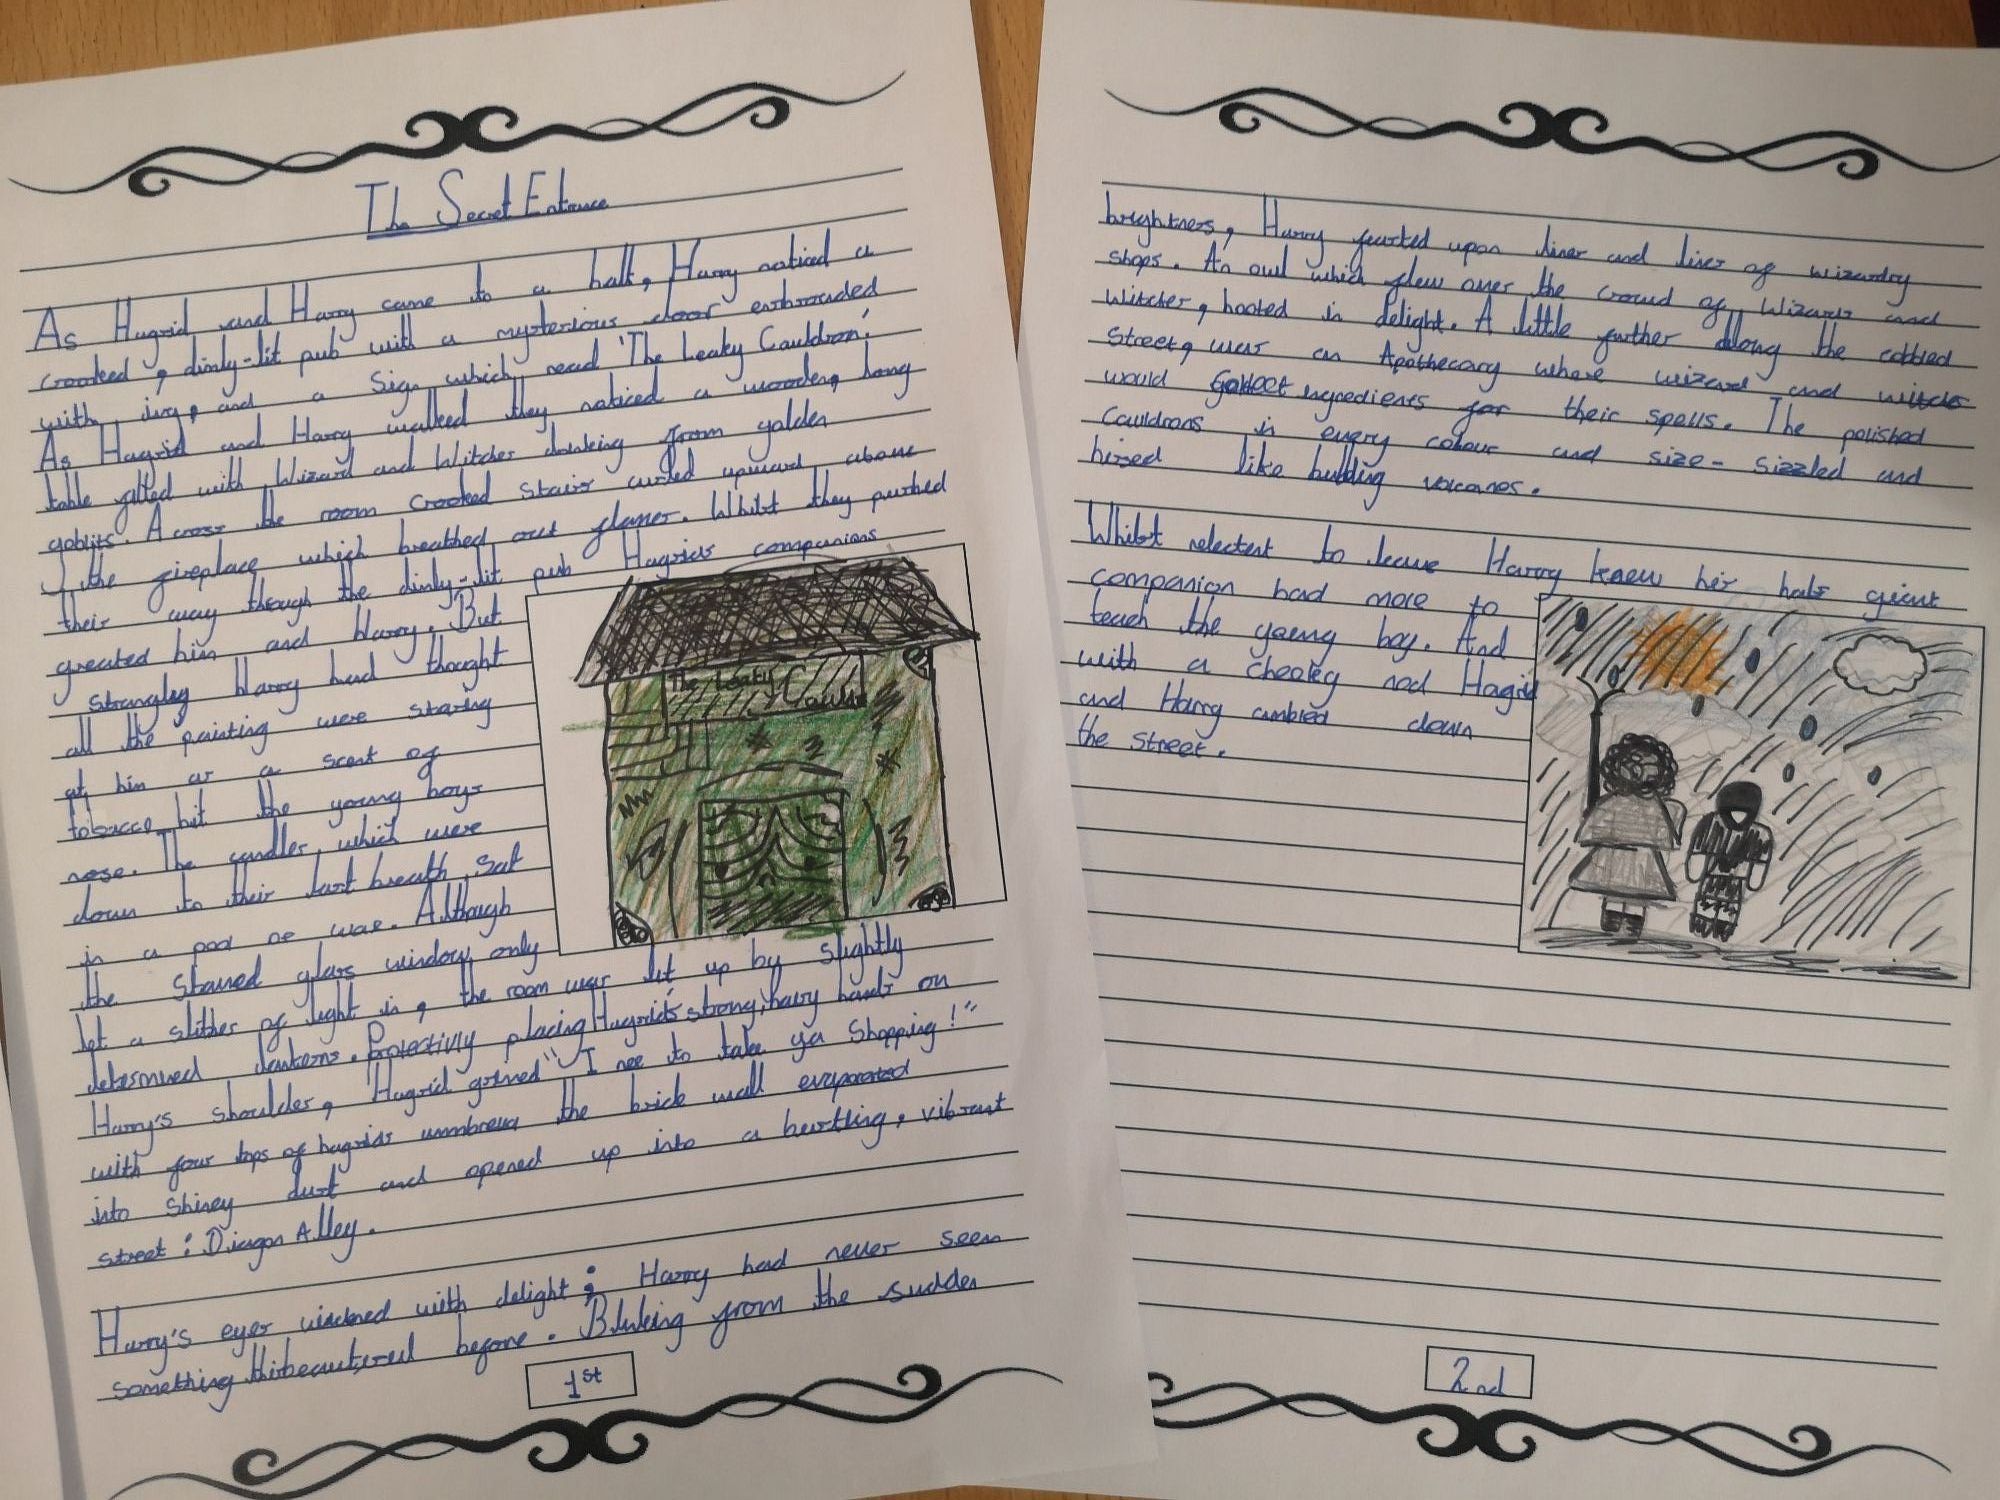 The Secret Entrace
As Hagrid and Harry came to a halt, Harry noticed a
crooked, dimly-lit pub with a mysterious door enshrouded
with ivy, and a sign which read 'The Leaky Cauldron.'
As Hagrid and Harry walked they noticed a wooden, long
table filled with Wizard and Witches drinking from golden
goblits. Across the room crooked stairs curled upward above
the fireplace which breathed out flames. Whilst they pushed
their way though the dimly-lit pub Hagrids companions
greated him and Harry. But
strangley Harry had thought
all the painting were staring
at him as a scent of
tobacco hit the young boys
nose. The candles, which were
down to their last breath, sat
in a pool oe wax. Although
the stained glass window only
let a slither of light in, the room was lit up by slightly
determined lanterns. Protectivly placing Hagrid's strong, hairy hands on
Harry's shoulder, Hagrid grined "I nee to take ya Shopping!"
with four taps of hagrids ummbrella the brick wall evaporated
into shiney dust and opened up into a bustling, vibrant
street: Diagon Alley.
Harry's eyes widened with delight; Harry had never seen
something before. Blinking from the sudden
1st
The Leaky Cauld
brightness, Harry feasted upon lines and lines of wizardry
shops. An owl which flew over the crowd of Wizards and
Witches, hooted in delight. A little further along the cobbled
street, was an Apothecary where wizard and witches
would collect ingredients for their spells. The polished
cauldrons in every colour and size- sizzled and
hissed like volcanos.
Whilst relectent to leave Harry knew his half giant
companion had more to
teach the young boy. And
with a nod Hagrid
and Harry ambled down
the street.
2nd